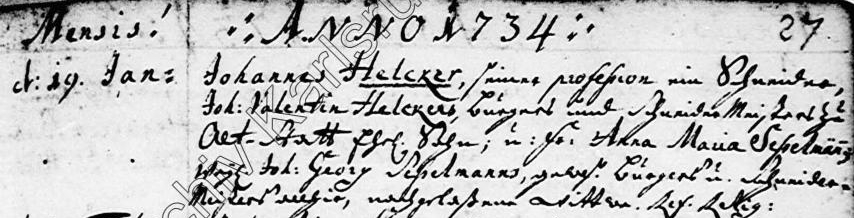 Mensis. ANNO 1734. 27
d. 19. Jan: Johannes Helcker, seiner profession ein Schneider,
Joh: Valentin Helckers, burgers und Schneider Meisters zu
Alt-Statt Ehel. Sohn; u: Fr: Anna Maria Sesselmännin
weyl. Joh: Georg Sesselmanns, gewes. burgers u. Schneider-
Meisters nachgelaßene Wittwe. Ref. Relig: